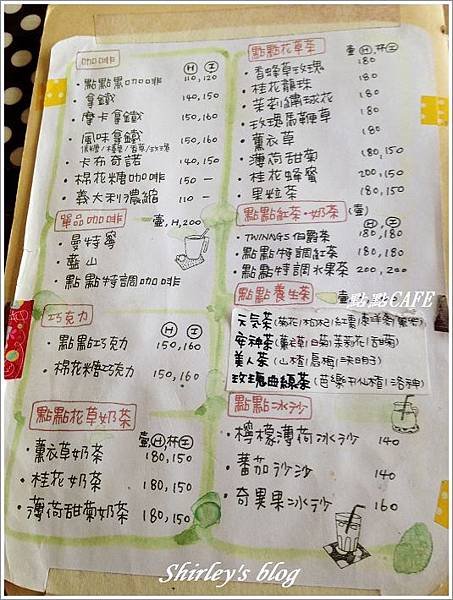 咖啡 Ⓗ Ⓘ
・點點黑咖啡 110,120
・拿鐵 140,150
・摩卡拿鐵 150,160
・風味拿鐵 150,160
・卡布奇諾 140,150
・棉花糖咖啡 150 —
・義大利濃縮 110 —
單品咖啡 壺,H,200
・曼特寧
・藍山
・點點特調咖啡
巧克力 Ⓗ Ⓘ
・點點巧克力 150,160
・棉花糖巧克力
點點花草奶茶 壺Ⓗ,杯Ⓘ
・薰衣草奶茶 180,150
・桂花奶茶 180,150
・薄荷甜菊奶茶 180,150
點點花草茶 壺Ⓗ,杯Ⓘ
・香蜂草玫瑰 180
・桂花龍珠 180
・茉莉繡球花 180
・玫瑰馬鞭草 180
・薰衣草 180
・薄荷甜菊 180,150
・桂花蜂蜜 200,150
・果粒茶 180,150
點點紅茶・奶茶(壺) Ⓗ,Ⓘ
・TWININGS伯爵茶 180,180
・點點特調紅茶 180,180
・點點特調水果茶 200,200
點點養生茶 壺
點點CAFE
元氣茶(菊花/枸杞/紅棗/
安神茶(薰衣草/
美人茶(山楂/烏梅/決明子)
玫瑰曲線茶(芭樂干/仙楂/洛神)
點點冰沙
・檸檬薄荷冰沙 140
・蕃茄沙沙 140
・奇異果冰沙 160
Shirley's blog